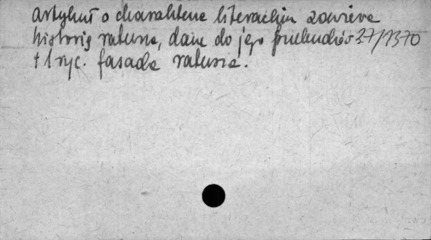 artykuł o charakterze literackim zawiera
historię ratusza, dane do jego przebudów 27/1370
+ 1 ryc. fasada ratusza.